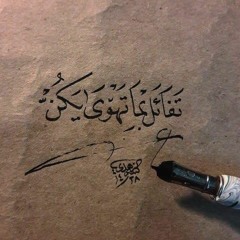 تَفَائَلْ بِمَا تَهْوَى يَكُنْ